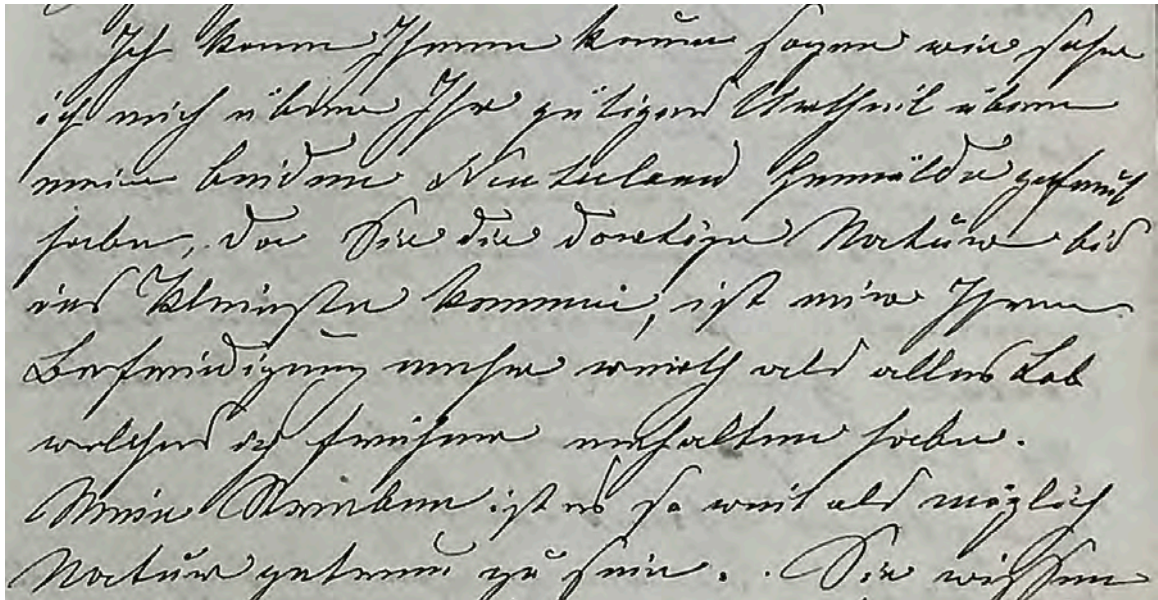 Ich kann Ihnen kaum sagen wie sehr
ich mich über Ihr gütiges Urtheil über
meine beiden Neu Seeland Gemälde gefreut
habe, da Sie die dortige Natur bis
ins Kleinste kennen, ist mir Ihre
Befriedigung mehr werth als alles Lob
welches ich früher erhalten habe.
Mein Streben ist es so weit als möglich
Natur getreu zu sein. Sie wissen